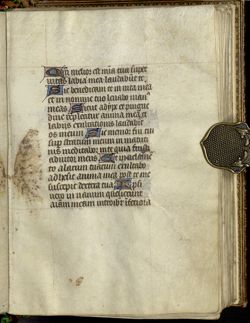 Qm melior est mia tua super
vitas labia mea laudabūt te
Sic benedicam te in vita mea
et in nomine tuo levabo man⁹
meas Sicut adype et pingue
dine repleatur anima mea et
labiis exultationis laudabit
os meum Si memor fui tui
sup stratum meum in matuti
nis meditabor in te quia fuisti
adiutor meus Et in velamē
to alarum tuarum exultabo
adhesit anima mea post te me
suscepit dextera tua Ipsi
vero in vanum quesierunt
aīam meam introibūt inferiora